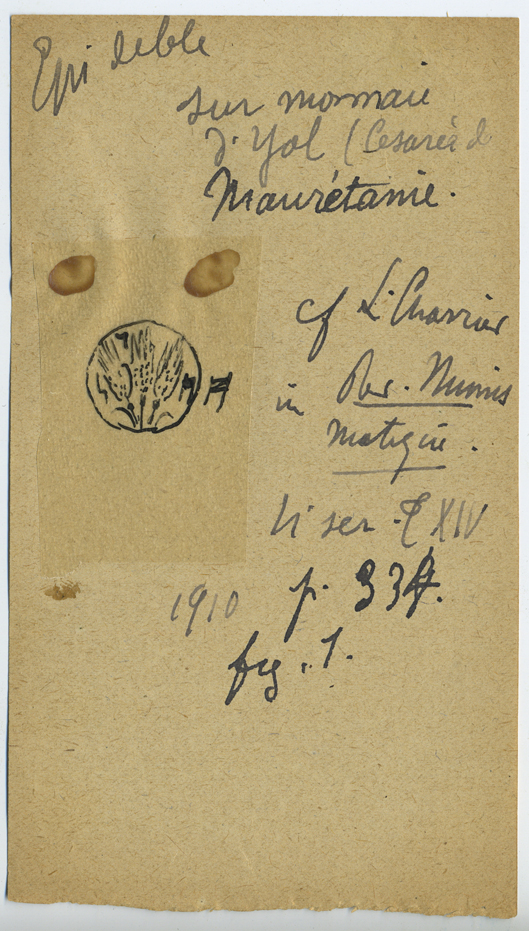 Epi de blé
sur monnaie
d'Yol (Cesarée de
Maurétanie.
cf L. Charrier
in Rev. Numis
matique.
4e ser. T XIV
1910 p. 334.
fig. 1.